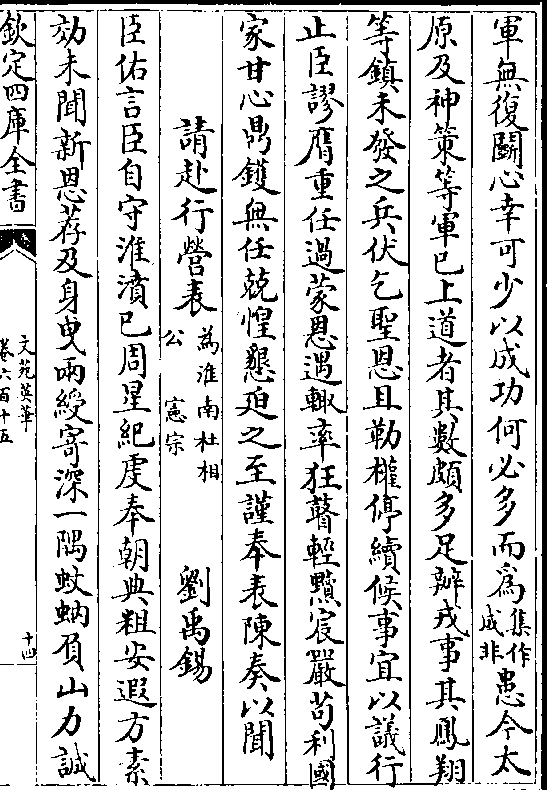 軍無復鬬心幸可少以成功何必多而爲集作成非患今太
原及神策等軍已上道者其數頗多足辦戎事其鳳翔
等鎮未發之兵伏乞聖恩且勒權停續候事宜以議行
止臣謬膺重任過蒙恩遇輙率狂瞽輕黷宸嚴苟利國
家甘心鼎鑊無任兢惶懇迫之至謹奉表陳奏以聞
請赴行營表爲淮南杜相公憲宗 劉禹錫
臣佑言臣自守淮濆已周星紀虔奉朝典粗安遐方素
効未聞新恩荐及身曳兩綬寄深一隅蚊蚋負山力誠
欽定四庫全書
文苑英華
卷六百十五
十四